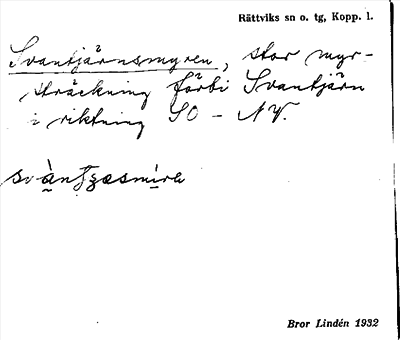 Rättviks sn o. tg, Kopp. l.
Svantjärnsmyren, stor myr-
sträckning förbi Svantjärn
i riktning SO - NV.
Bror Lindén 1932